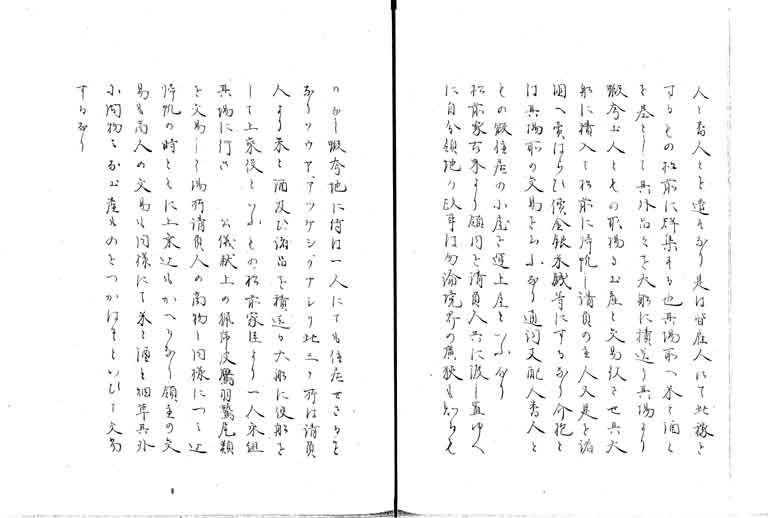 人と番人とを遣すなり是は皆在人にて此稼を
するもの松前に群集する也其場所へ米と酒と
を基として其外品々を大船に積送り其場より
蝦夷人とその取場の土産と交易致させ其大
船に積入て松前に帰帆し請負の主人又是を諸
国へ売はらひ償金銀米銭等にするなり介抱と
は其場所の交易をいふなり通詞支配人番人と
もの假住居の小屋を運上屋といふなり
松前家古来より領内を請負人共に渡し置ゆへ
に自分領地の政事は勿論境界の廣狭も知らえ
のなし蝦夷地に侍は一人にても住居せさるを
なりソウヤ、アツケシ、クナシリ此三ヶ所は請負
人より米と酒及ひ諸品を積送る大船に使船を
して上乗役といふもの松前家臣より一人乗組
其場に行 公儀献上の 皮鷲羽鷲尾類
を交易しし場所請負人の商物と同様につミ込
帰帆の時ともに上乗 もかへるなり領主の交
易も商人の交易も同様にて米と酒と烟草其外
小間物 土産ものをつかはすといひして交易
するなり